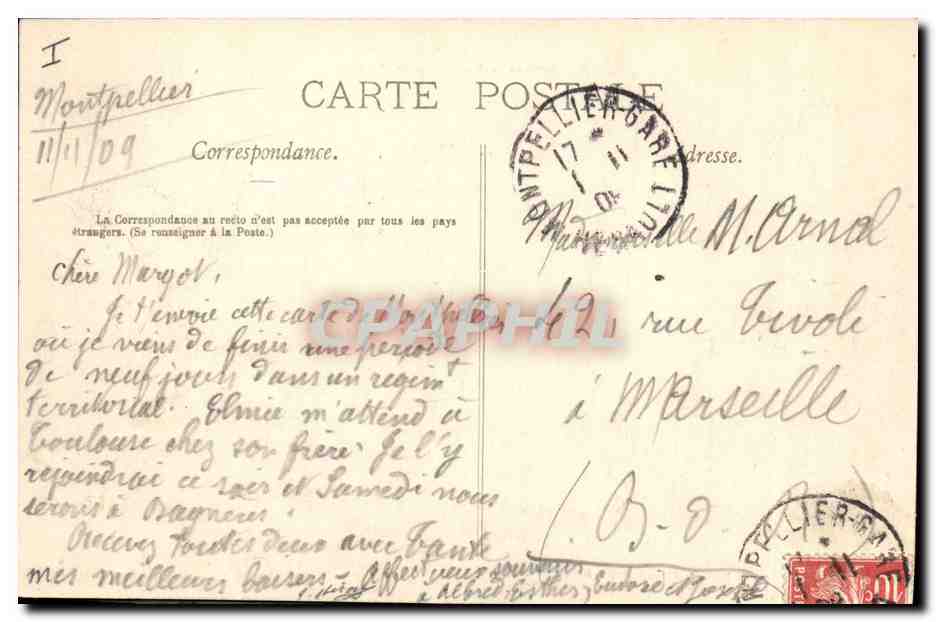 I
Montpellier
11/11/09
CARTE POSTALE
Correspondance.
La Correspondance au recto n'est pas acceptée par tous les pays
étrangers. (Se renseigner à la Poste.)
Chère Margot,
Je t'envoie cette carte de Montpellier
où je viens de finir une période
de neuf jours dans un regimt
territorial. Elmie m'attend à
Toulouse chez son frère. Je l'y
rejoindrai ce soir et Samedi nous
serons à Bagneres.
Recevez toutes deux avec Tante
mes meilleurs baisers
Affectueux souvenirs
à Alfred, Esther, et
MONTPELLIER-GARE
17
11
Adresse.
Mademoiselle M. Arnal
42, rue Tivoli
à Marseille
(B-d-
CPAPHIL
PELLIER-GARE
11
10
POSTES